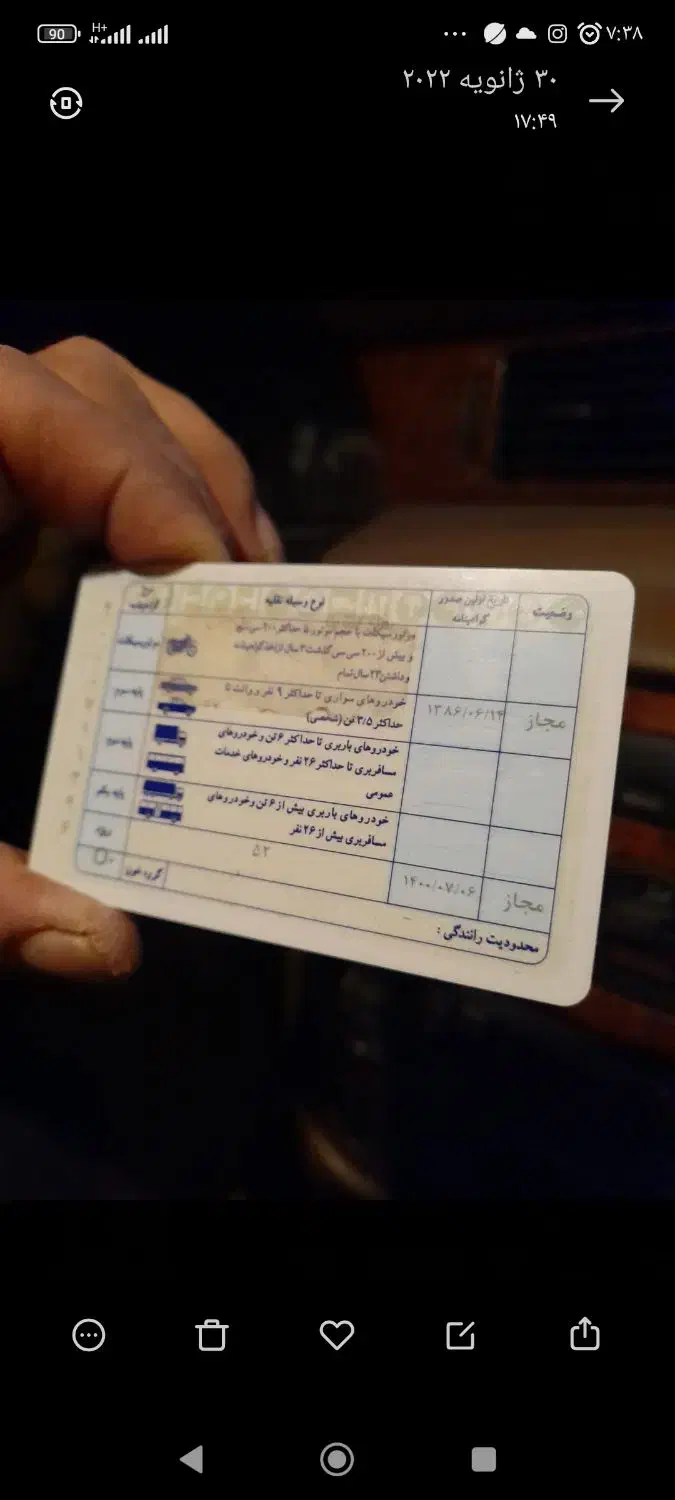 90 H+ ... ۷:۳۸
۳۰ ژانویه ۲۰۲۲
۱۷:۴۹
وضعیت
تاریخ اولین صدور گواهینامه
نوع وسیله نقلیه
موتورسیکلت
موتورسیکلت با حجم موتور تا حداکثر ۲۰۰ سی سی
و بیش از ۲۰۰ سی سی گذشت ۳ سال از اخذ گواهینامه
و داشتن ۲۳ سال تمام
مجاز
۱۳۸۶/۰۶/۱۴
خودروهای سواری تا حداکثر ۹ نفر و وانت تا
حداکثر ۳/۵ تن (شخصی)
پایه سوم
خودروهای باربری تا حداکثر ۶ تن و خودروهای
مسافربری تا حداکثر ۲۶ نفر و خودروهای خدمات
عمومی
پایه دوم
خودروهای باربری بیش از ۶ تن وخودروهای
مسافربری بیش از ۲۶ نفر
پایه یکم
مجاز
۱۴۰۰/۰۷/۰۶
۵۲
ویژه
محدودیت رانندگی :
گروه خون